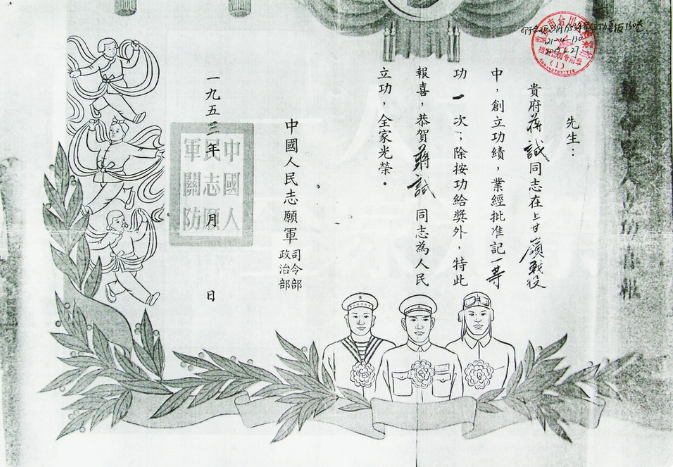 立功喜報
先生：
貴府蔣誠同志在上甘嶺戰役
中，創立功績，業經批准記一等
功一次；除按功給獎外，特此
報喜，恭賀蔣誠同志為人民
立功，全家光榮。
中國人民志願軍司令部政治部
一九五三年 月 日
中國人
民志願
軍關防